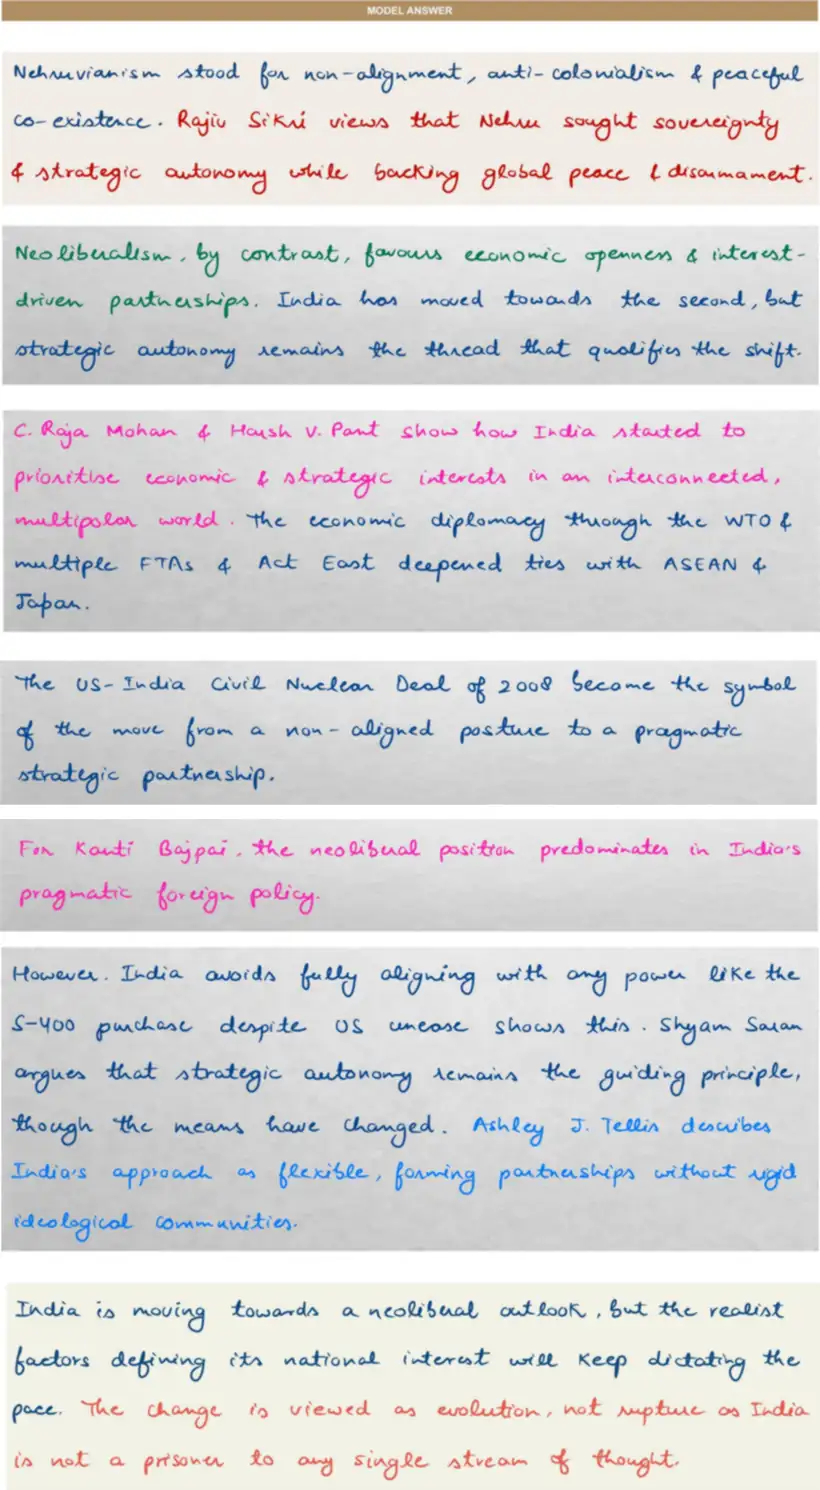 MODEL ANSWER
Nehruvianism stood for non-alignment, anti-colonialism & peaceful
co-existence. Rajiv Sikri views that Nehru sought sovereignty
& strategic autonomy while backing global peace & disarmament.
Neoliberalism, by contrast, favours economic openness & interest-
driven partnerships. India has moved towards the second, but
strategic autonomy remains the thread that qualifies the shift.
C. Raja Mohan & Harsh V. Pant show how India started to
prioritise economic & strategic interests in an interconnected,
multipolar world. The economic diplomacy through the WTO &
multiple FTAs & Act East deepened ties with ASEAN &
Japan.
The US-India Civil Nuclear Deal of 2008 became the symbol
of the move from a non-aligned posture to a pragmatic
strategic partnership.
For Kanti Bajpai, the neoliberal position predominates in India's
pragmatic foreign policy.
However, India avoids fully aligning with any power like the
S-400 purchase despite US unease shows this. Shyam Saran
argues that strategic autonomy remains the guiding principle,
though the means have changed. Ashley J. Tellis describes
India's approach as flexible, forming partnerships without rigid
ideological communities.
India is moving towards a neoliberal outlook, but the realist
factors defining its national interest will keep dictating the
pace. The change is viewed as evolution, not rupture as India
is not a prisoner to any single stream of thought.